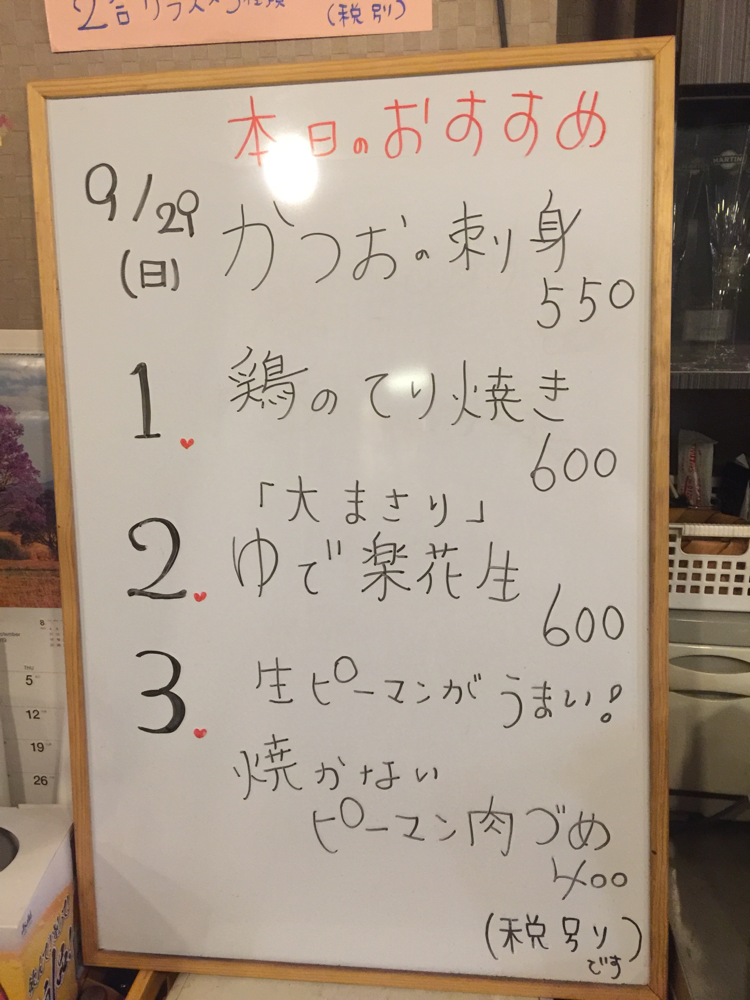 (税別)
本日のおすすめ
9/29
(日)
かつおの刺り身
550
1
鶏のてり焼き
600
「大まさり」
2
ゆで楽花生
600
3
生ピーマンがうまい!
焼かない
ピーマン肉づめ
400
(税別り)
です
THU
5
12
19
26